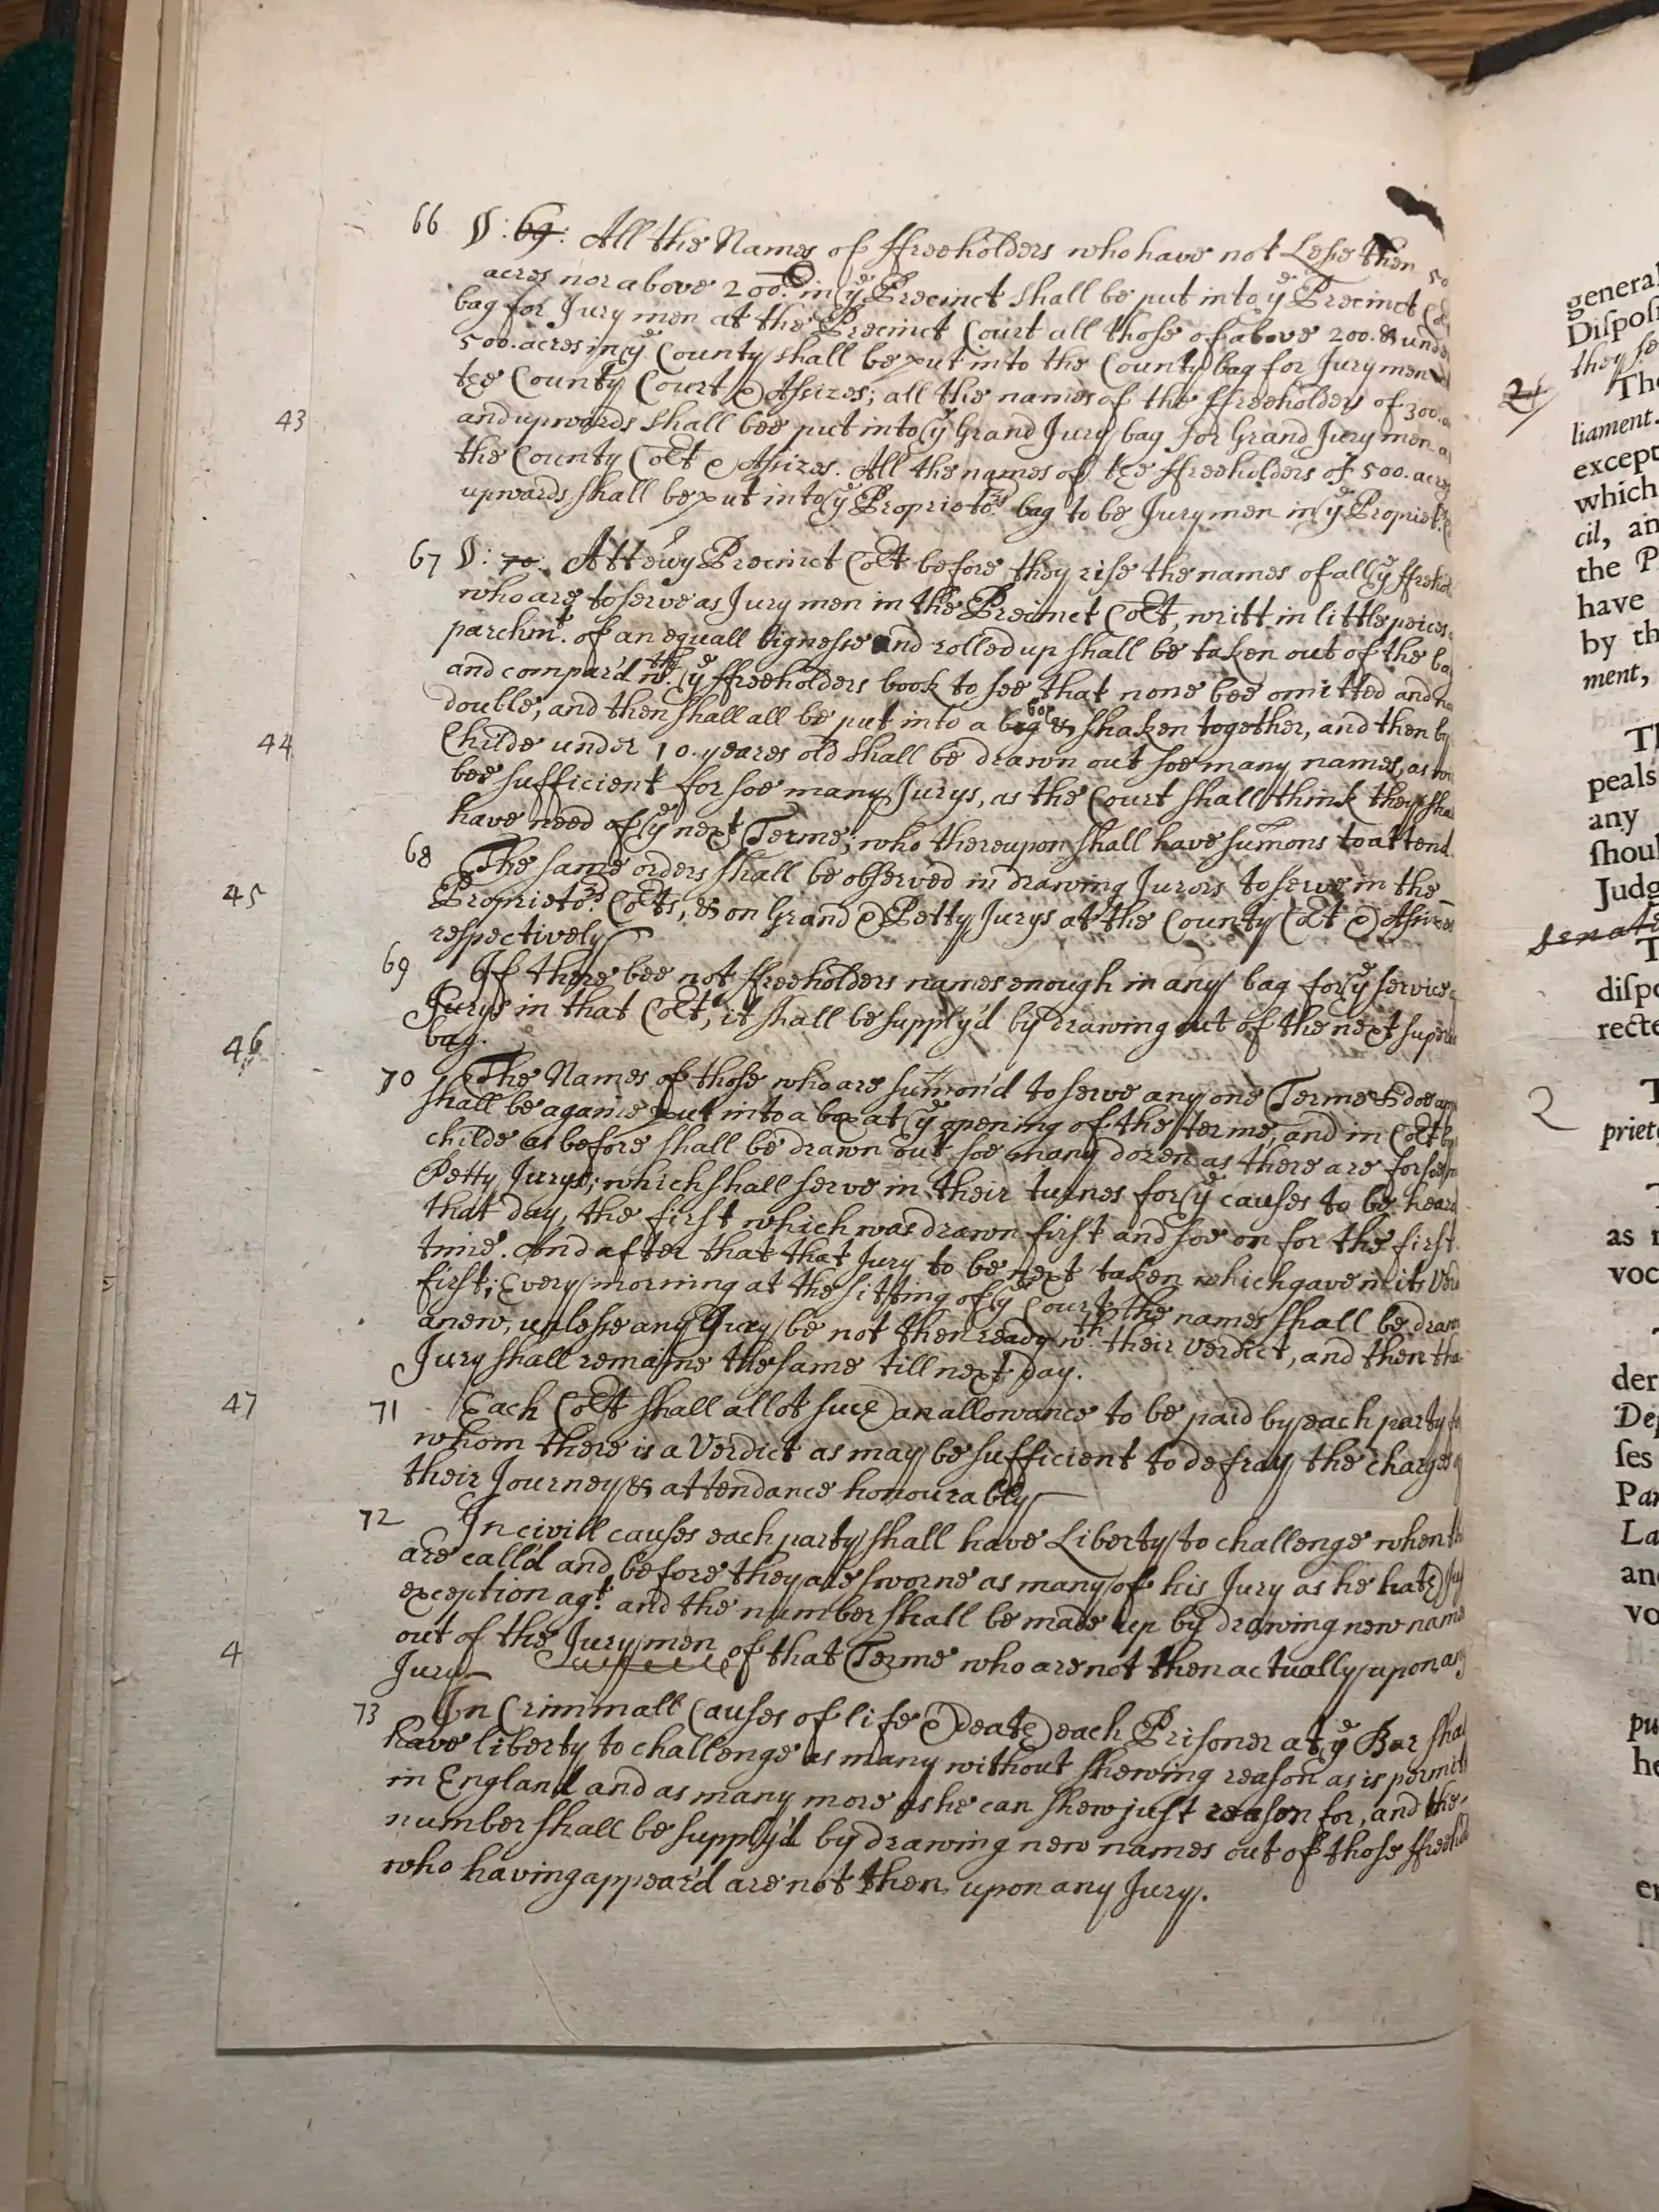 66 §: 69: All the Names of ffreeholders who have not Lesse then 50
acres nor above 200: in ye Precinct shall be put into ye Precinct
bag for Jury men at the Precinct Court all those of above 200. & unde
500. acres in ye County shall be put into the County bag for Jury men
the County Court & Assizes; all the names of the ffreeholders of 300.
43
and upwards shall bee put into ye Grand Jury bag for Grand Jury men a
the County Cort & Assizes. All the names of the ffreeholders of 500. acres
upwards shall be put into ye Proprietors bag to be Jury men in ye Propriet
67 §: 70. At every Precinct Cort before they rise the names of all ye ffrehol
who are to serve as Jury men in the Precinct Cort, writt in little peices
parchmt. of an equall bignesse and rolled up shall be taken out of the ba
and compar'd wth ye ffreeholders book to see that none bee omitted and no
double, and then shall all be put into a bag box & shaken together, and then by
44
Childe under 10. yeares old shall be drawn out soe many names, as wi
bee sufficient for soe many Jurys, as the Court shall think they sha
have need of ye next Terme; who thereupon shall have sumons to attend.
68 The same orders shall be observed in drawing Jurors to serve in the
45
Proprietors Corts, & on Grand & Petty Jurys at the County Cort & Assizes
respectively
69 If there bee not ffreeholders names enough in any bag for ye service
Jurys in that Cort, it shall be supply'd by drawing out of the next super
46
bag.
70 The Names of those who are sumon'd to serve any one Terme & doe app
shall be againe put into a box at ye opening of the terme, and in Cort by
childe as before shall be drawn out soe many dozen as there are
Petty Jurys; which shall serve in their turnes for ye causes to be heard
that day, the first which was drawn first and soe on for the first
time. And after that that Jury to be next taken which gave in its Verd
first; Every morning at the sitting of ye Court the names shall be drawn
anew, unlesse any Jury be not then ready wth their Verdict, and then tha
Jury shall remaine the same till next day.
47
71 Each Cort shall allot such an allowance to be paid by each party for
whom there is a Verdict as may be sufficient to defray the charges
their Journey & attendance honourably
72 In civill causes each party shall have Liberty to challenge when th
are call'd and before they are sworne as many of his Jury as he hath
exception agt. and the number shall be made up by drawing new name
4
out of the Jury men of that Terme who are not then actually upon any
Jury
73 In Criminall Causes of life & death each Prisoner at ye Bar shal
have liberty to challenge as many without shewing reason as is permit
in England and as many more as he can shew just reason for, and the
number shall be supply'd by drawing new names out of those ffreehol
who having appear'd are not then upon any Jury.
general
Diſpoſ
they ſe
2
Th
liament.
except
which
cil, an
the P
have
by th
ment,
Th
peals
any
ſhoul
Judg
Senat
T
diſpo
recte
2
T
priet
T
as
voc
T
der
Dep
ſes
Par
La
an
vo
pu
he
er